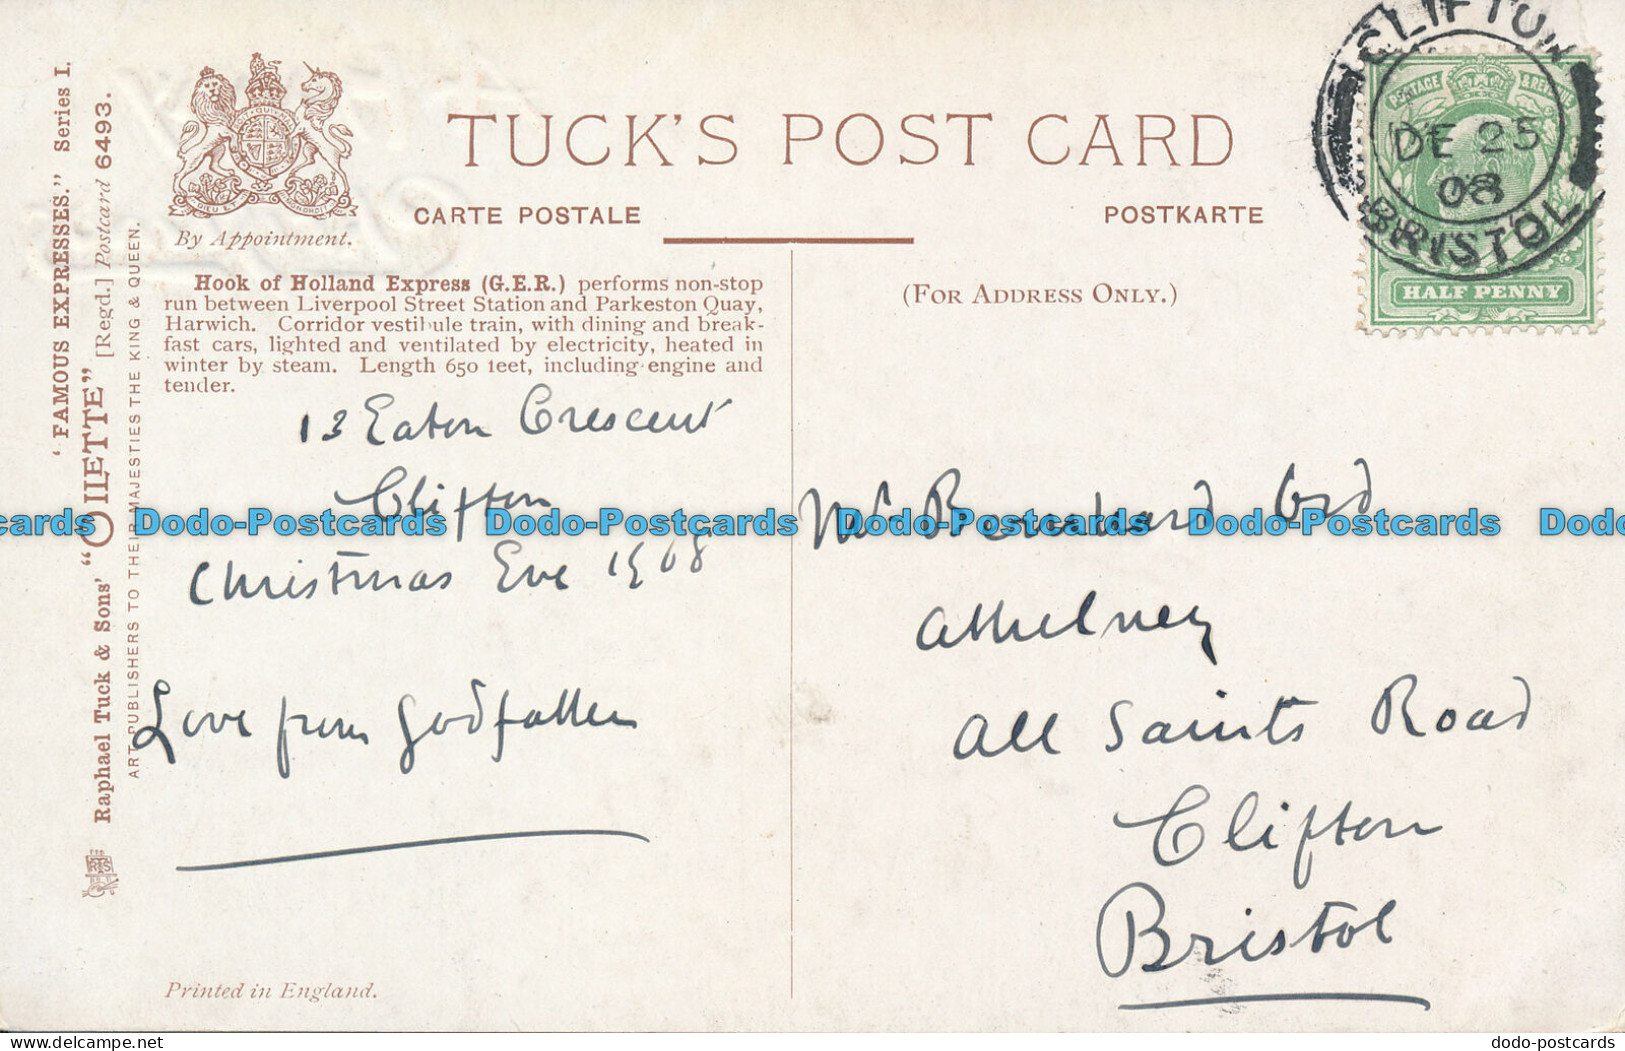 'FAMOUS EXPRESSES." Series I.
Raphael Tuck & Sons' "OILETTE" [Regd.] Postcard 6493.
ART PUBLISHERS TO THEIR MAJESTIES THE KING & QUEEN.
DIEU ET MON DROIT
By Appointment.
TUCK'S POST CARD
CARTE POSTALE
POSTKARTE
(FOR ADDRESS ONLY.)
CLIFTON
DE 25
08
BRISTOL
POSTAGE & REVENUE
HALF PENNY
Hook of Holland Express (G.E.R.) performs non-stop
run between Liverpool Street Station and Parkeston Quay,
Harwich. Corridor vestibule train, with dining and break-
fast cars, lighted and ventilated by electricity, heated in
winter by steam. Length 650 feet, including engine and
tender.
13 Eaton Crescent
Clifton
Christmas Eve 1908
Love from Godfather
Mr Bernard Ord
Athelney
All Saints Road
Clifton
Bristol
Printed in England.
cards Dodo-Postcards Dodo-Postcards Dodo-Postcards Dodo-Postcards Dodo
dodo-postcards
dodo-postcards.com